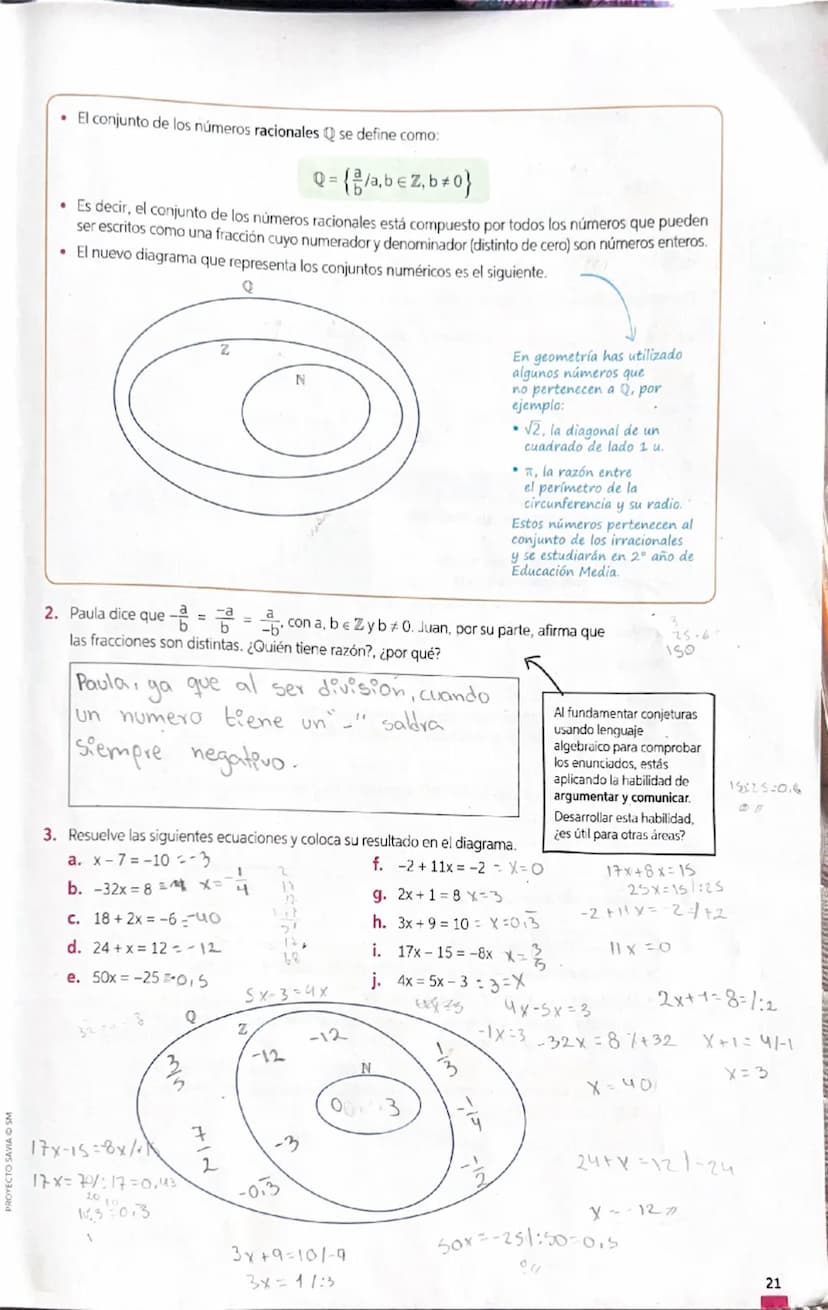 • El conjunto de los números racionales ℚ se define como:
ℚ = {a/b /a, b ∈ ℤ, b ≠ 0}
• Es decir, el conjunto de los números racionales está compuesto por todos los números que pueden
ser escritos como una fracción cuyo numerador y denominador (distinto de cero) son números enteros.
• El nuevo diagrama que representa los conjuntos numéricos es el siguiente.
Q
Z
N
En geometría has utilizado
algunos números que
no pertenecen a Q, por
ejemplo:
• √2, la diagonal de un
cuadrado de lado 1 u.
• π, la razón entre
el perímetro de la
circunferencia y su radio.
Estos números pertenecen al
conjunto de los irracionales
y se estudiarán en 2° año de
Educación Media.
2. Paula dice que -a/b = -a/b = a/-b, con a, b ∈ ℤ y b ≠ 0. Juan, por su parte, afirma que
las fracciones son distintas. ¿Quién tiene razón?, ¿por qué?
3
25·6
150
Paula, ya que al ser división, cuando
un numero tiene un "-" saldra
siempre negativo.
Al fundamentar conjeturas
usando lenguaje
algebraico para comprobar
los enunciados, estás
aplicando la habilidad de
argumentar y comunicar.
Desarrollar esta habilidad,
¿es útil para otras áreas?
3. Resuelve las siguientes ecuaciones y coloca su resultado en el diagrama.
a. x – 7 = –10 = -3
b. –32x = 8 x = -1/4
c. 18 + 2x = –6 = -40
d. 24 + x = 12 = -12
e. 50x = –25 = -0,5
f. –2 + 11x = –2 = x=0
g. 2x + 1 = 8 x=3
h. 3x + 9 = 10 = x=0,3̅
i. 17x – 15 = –8x x = 3/5
j. 4x = 5x – 3 = 3=x
17x+8x=15
25x=15/:25
-2+11x=-2/+2
11x=0
5x-3=4x
4x-5x=3
-1x=3
2x+1=8=/:2
x+1=4/-1
x=3
-32x=8/+32
x=40
Q
Z
N
3/5
7/2
-12
-12
-3
-0,3̅
0
3
1/3
-1/4
-1/2
17x-15=8x
17x=
24+x=12/-24
x=-12
50x=-25/:50=0,5
3x+9=10/-9
3x=1/:3
PROYECTO SAVIA © SM
21